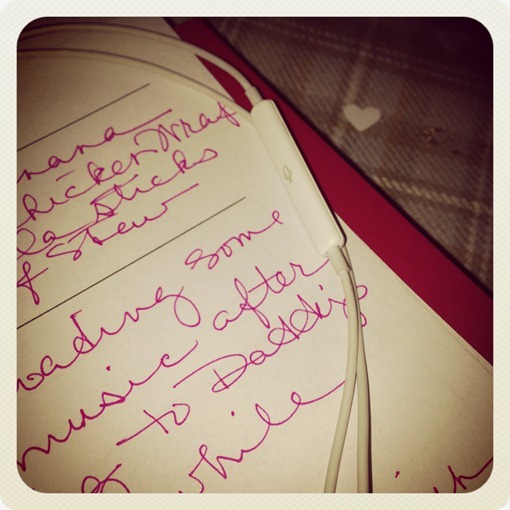 nana
hicken Wrap
la sticks
f Stew
oading some
music after
to Daddy
while